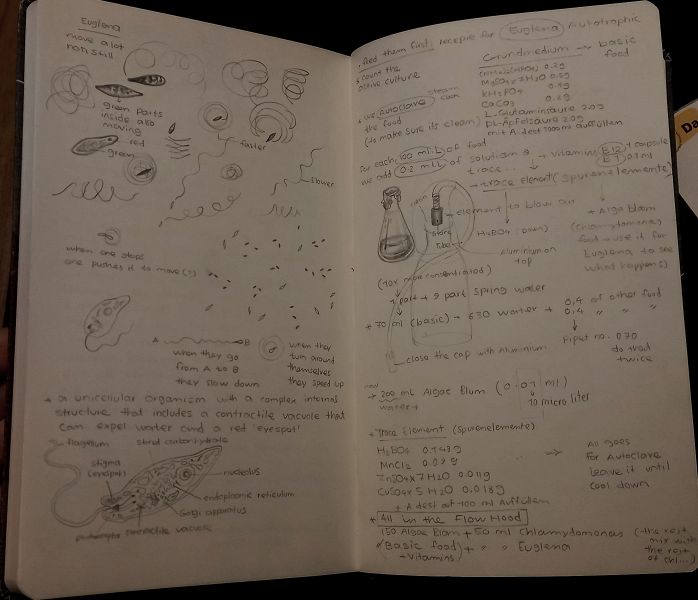 Euglena
move a lot
non still
green parts
inside also
moving
red
green
faster
slower
when one stops
one pushes it to move (?)
A
B
when they go
from A to B
they slow down
when they
turn around
themselves
they speed up
a unicellular organism with a complex internal
structure that includes a contractile vacuole that
can expel water and a red 'eyespot'
flagellum
stigma
(eyespot)
nucleolus
endoplasmic reticulum
Golgi apparatus
contractile vacuole
feed them first: recepie for Euglena Autotrophic
count the
active culture
Grundmedium → basic
food
0.2g
KH2PO4
CaCO3
L-Glutaminsäure 2.0g
DL-Äpfelsäure 2.0g
mit A.dest 1000 ml auffüllen
we Autoclave
steam
the food
(to make sure its clean)
For each 100 ml of food
we add 0.2 ml of solution
trace..
Vitamins B12 1 capsule
B1 0.1 ml
trace element (Spurenelemente)
element to blow air
Tube
Aluminium on
top
+ Alge Blom
(chlamydomonas)
food → use it for
Euglena to see
what happens)
(10x more concentrated)
1 part + 9 part spring water
70 ml (basic) → 630 water + 0,4 of other food
0,4 " "
Pipet no. 070
do that
twice
close the cap with Aluminium
200 ml Algae Blum (0.01 ml)
water
10 micro liter
Trace Element (Spurenelemente)
H3BO4
MnCl2
ZnSO4 x 7 H2O 0.011g
CuSO4 x 5 H2O 0.018g
+ A dest of 100 ml Auffüllen
All goes
for Autoclave
leave it until
cool down
All in the Flow Hood
150 Algae Blam + 50 ml Chlamydomonas
(the rest
mix with
the rest
of chl...)
(Basic food) + " " Euglena
+ Vitamins